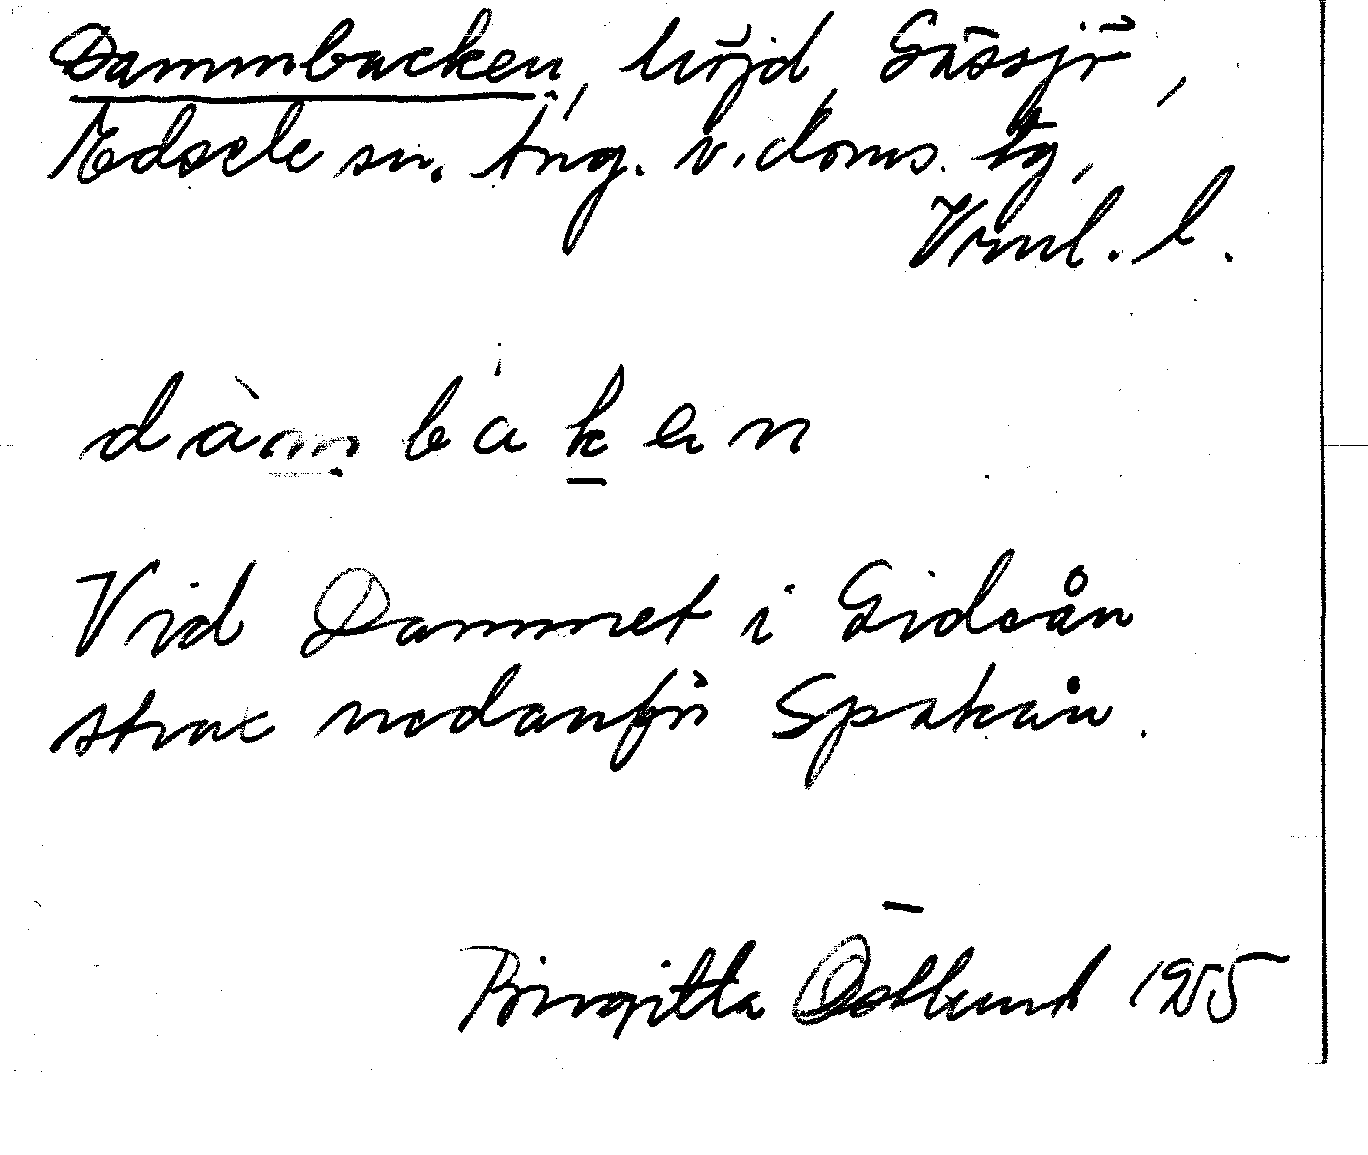 Dammbacken, höjd Gässjö,
Edsele sn. Ång. v. doms. tg,
Vnl. l.
dàmbaken
Vid Dammet i Gideån
strax nedanför Spakån.
Birgitta Östlund 1955